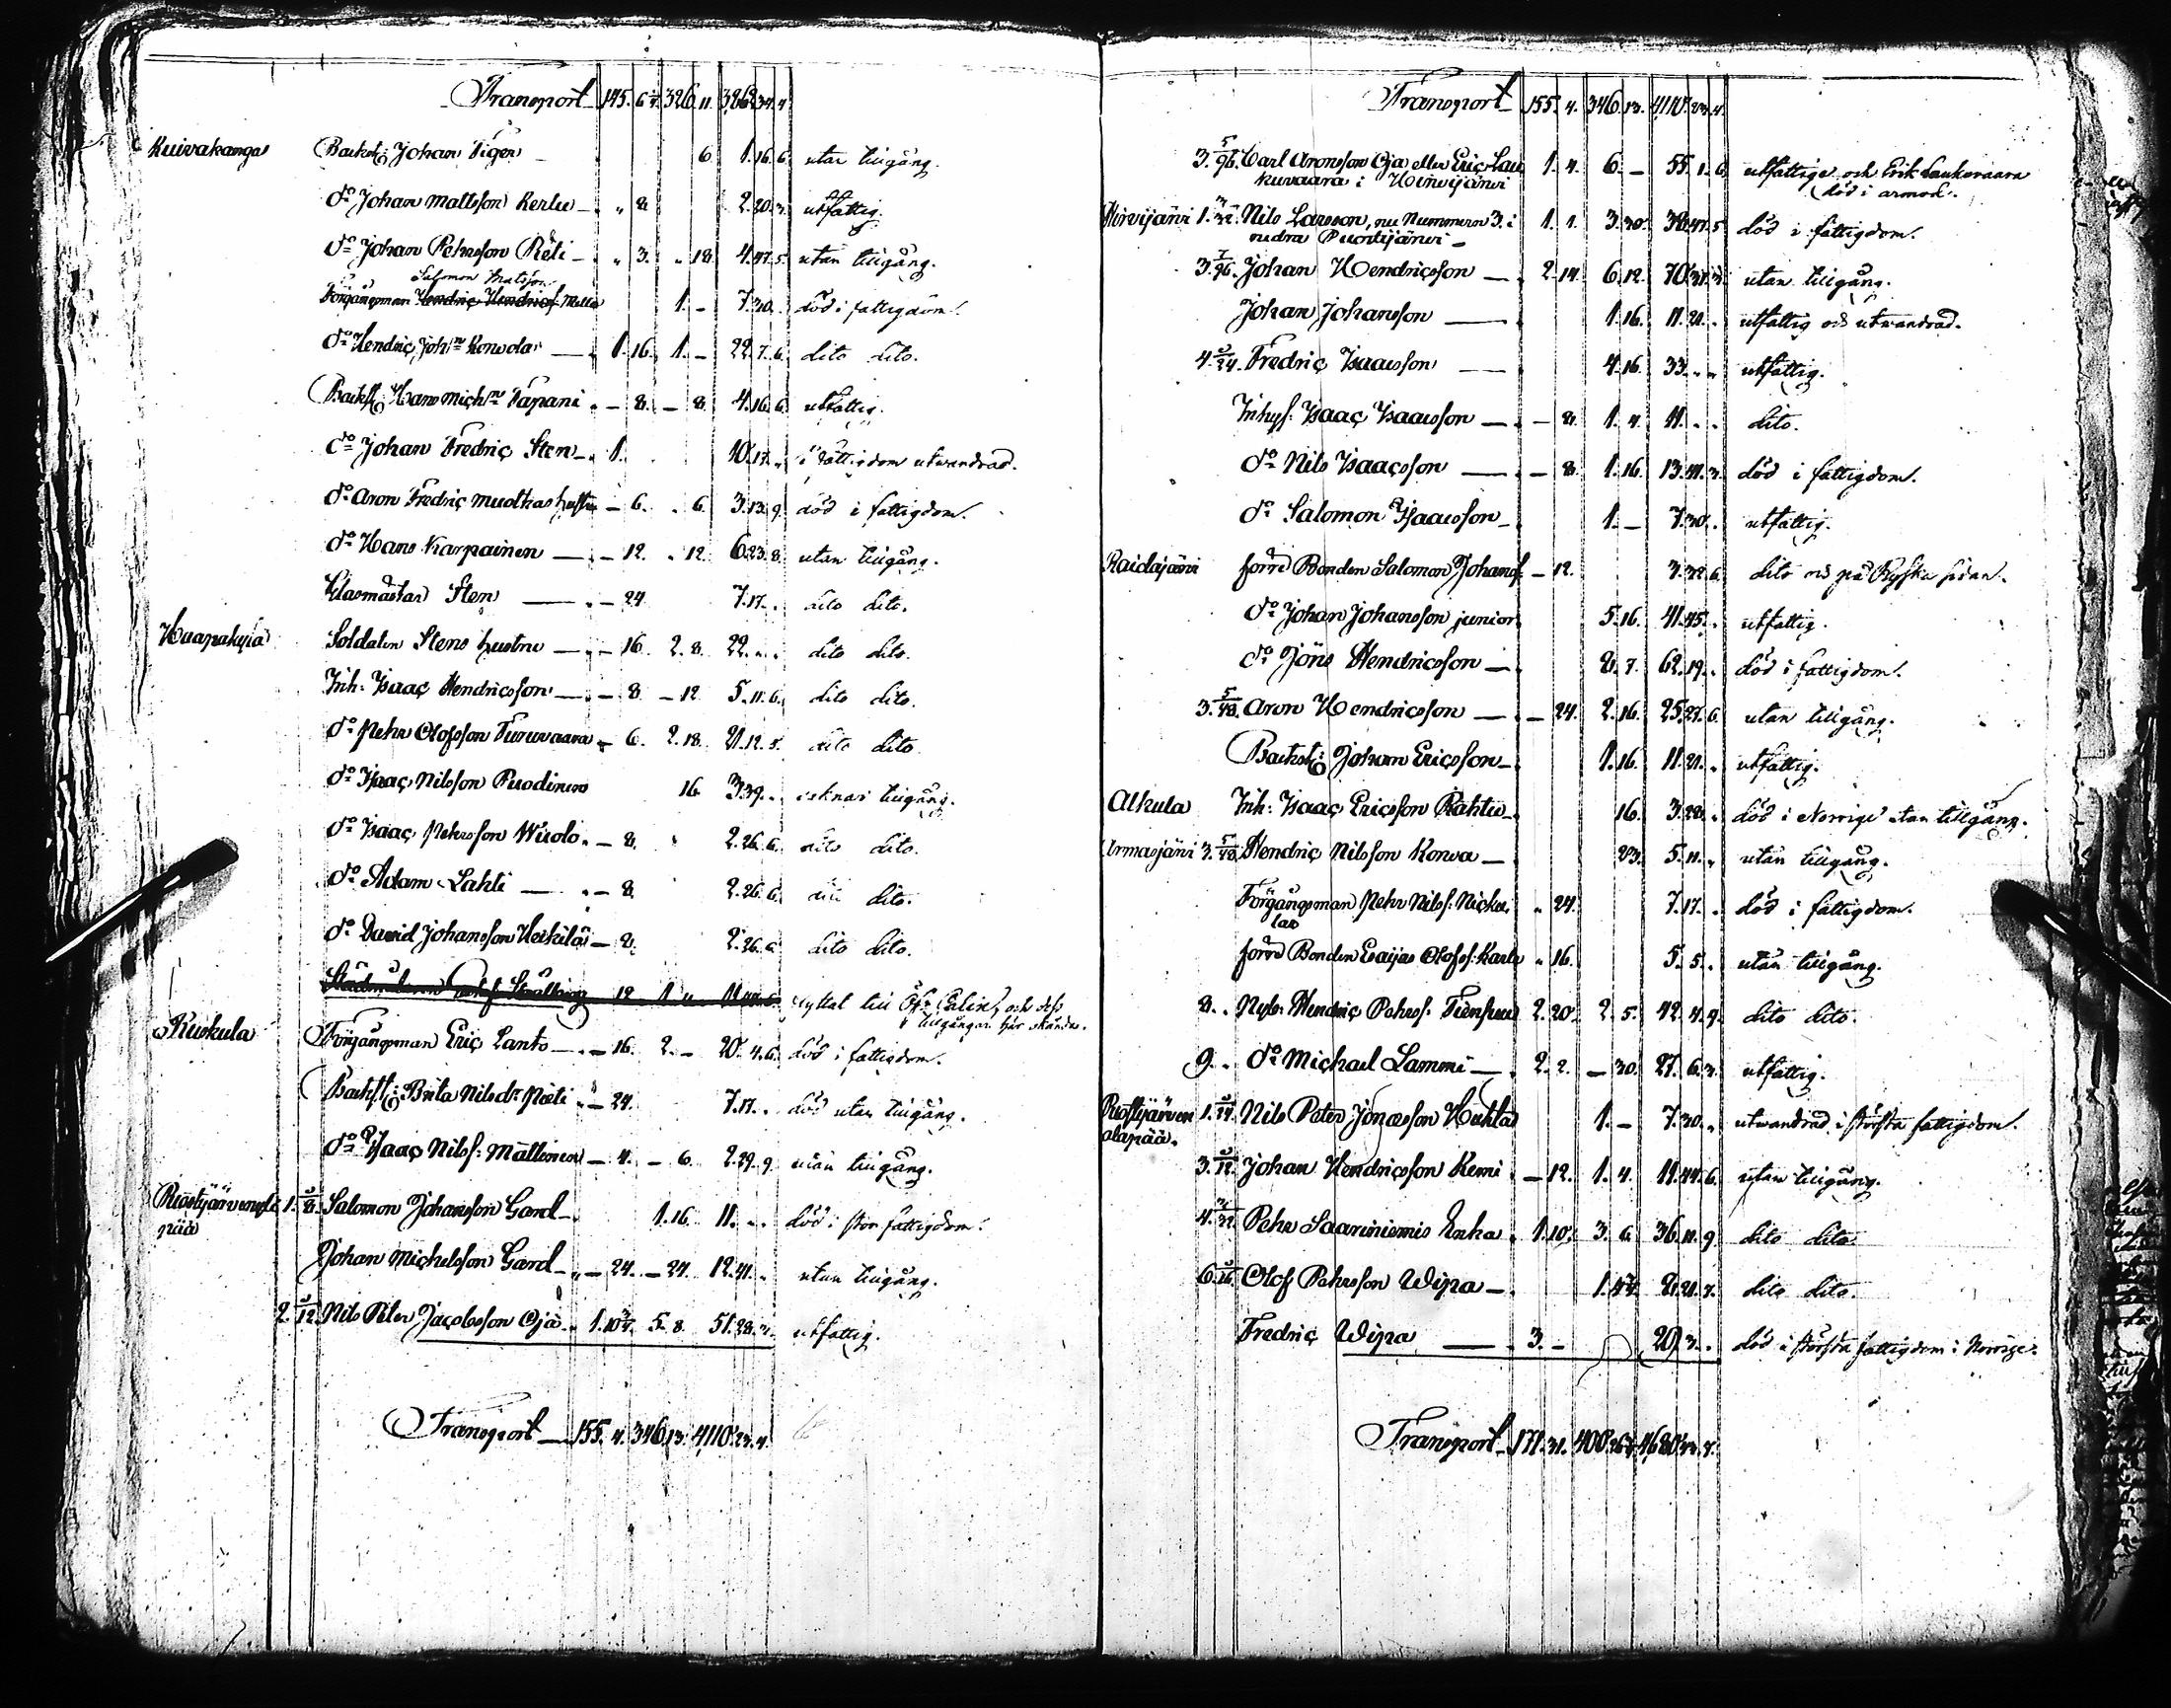 Transport 145. 6 326 11. 3,262 34. 4.
Kuivakanga Backst: Johan Tiger 6 1. 16. 6. utan tillgång.
do Johan Mattsson Kerttu „ 8 2. 20. 3. utfattig.
do Johan Pehrsson Räti „ 3. „ 18. 4. 47. 5. utan tillgång.
Salomon Matsson
Förgångsman Hendric Hendrics Mella 1. – 7. 30. död i fattigdom.
do Hendric Johns 1. 16. 1. – 22. 7. 6. dito dito.
Backst: Hans Michsn Tapani – 8. – 8. 4. 16. 6. utfattig.
do Johan Fredric Sten 1. 10. 17. „ i fattigdom utwandrad.
do Aron Fredric Muotkas hustru – 6. „ 6. 3. 13. 9. död i fattigdom.
do Hans Karpainen – 12. „ 12. 6. 23. 8. utan tillgång.
Klasmästar Sten – 24. 7. 17. . dito dito.
Haapakylä Soldaten Stens hustru – 16. 2. 8. 22. „ . dito dito.
Inh: Isaac Hendricsson – 8. – 12. 5. 11. 6. dito dito.
do Pehr Olofsson Turuvaara – 6. 2. 18. 21. 12. 5. dito dito
do Isaac Nilsson Puodinen 16. 3. 39. . saknar tillgång.
do Isaac Pehrsson Wuolo – 8. 2. 26. 6. dito dito.
do Adam Lahti – 8. 2. 26. 6. dito dito.
do David Johansson Heikilä – 8. 2. 26. 6. dito dito.
12 1 11 flyttat till och dess
tillgångar här okända.
Ruskula Förgångsman Eric Lanto – 16. 2. – 20. 4. 6. död i fattigdom.
Backst: Brita Nilsdr Pieti – 24. 7. 17. . död utan tillgång.
do Isaac Nilss: Mällinen – 4. – 6. 2. 29. 9. utan tillgång.
pää 1. 5/8. Salomon Johansson Gard 1. 16. 11. „ . död i stor fattigdom.
Johan Michelsson Gard – 24. – 24. 12. 41. . utan tillgång.
2. 5/12. Nils Peter Jacobsson Oja 1. 10 5. 8. 51. 28. 3. utfattig.
Transport 155. 4. 346. 13. 4,110. 23. 4.
Transport 155. 4. 346. 13. 4,110. 23. 4.
3. 5/96. Carl Aronsson Oja eller Eric Lau 1. 4. 6. – 55. 1. 6. utfattige och Erik Laukuvaara
kuvaara i Hirvijärvi död i armod.
Hirvijärvi 1. 3/32. Nils Larsson, nu Nummern 3. i 1. 1. 3. 30. 38. 47. 5. död i fattigdom.
nedra Puostijärvi
3. 7/96. Johan Hendricsson 2. 14. 6. 12. 70. 31. 3. utan tillgång.
Johan Johansson 1. 16. 11. 21. . utfattig och utwandrad.
4. 5/24. Fredric Isaacsson 4. 16. 33. „ „ utfattig.
Inhys: Isaac Isaacsson – 8. 1. 4. 11. . . dito.
do Nils Isaacsson – 8. 1. 16. 13. 41. 3. död i fattigdom.
do Salomon Isaacsson 1. – 7. 30. . utfattig.
Raidajärvi förre Bonden Salomon Johans – 12. 3. 32. 6. dito och på Ryska sidan.
do Johan Johansson junior 5. 16. 41. 45. . utfattig.
do Jöns Hendricsson 8. 7. 62. 19. . död i fattigdom.
3. 5/48. Aron Hendricsson – 24. 2. 16. 25. 27. 6. utan tillgång.
Backst: Johan Ericsson 1. 16. 11. 21. . utfattig.
Alkula Inh: Isaac Ericsson Rahtu 16. 3. 28. . död i Norrige utan tillgång.
Armasjärvi 3. 5/48. Hendric Nilsson Korva 23. 5. 11. „ utan tillgång.
Förgångsman Pehr Nilss: Nicku „ 24. 7. 17. . död i fattigdom.
las
förre Bonden Esaijas Olofss: Karlu „ 16. 5. 5. . utan tillgång.
8. . Nyb: Hendric Pehrss: 2. 20. 2. 5. 42. 4. 9. dito dito.
9. . do Michael Lammi 2. 2. – 30. 27. 6. 3. utfattig.
Puostijärven 1. 5/24. Nils Peter Jonasson Huhta 1. – 7. 30. „ utwandrad i största fattigdom.
alapää.
3. 5/12. Johan Hendricsson Kemi – 12. 1. 4. 11. 44. 6. utan tillgång.
4. 7/32. Pehr Saariniemis Enka 1. 10. 3. 6. 36. 11. 9. dito dito
6. 5/16. Olof Pehrsson Wipa 1. 21. 7. dito dito.
Fredric Wipa 3. – 20. 3. . död i största fattigdom i Norrige.
Transport 171. 31. 400. 26 4,680.